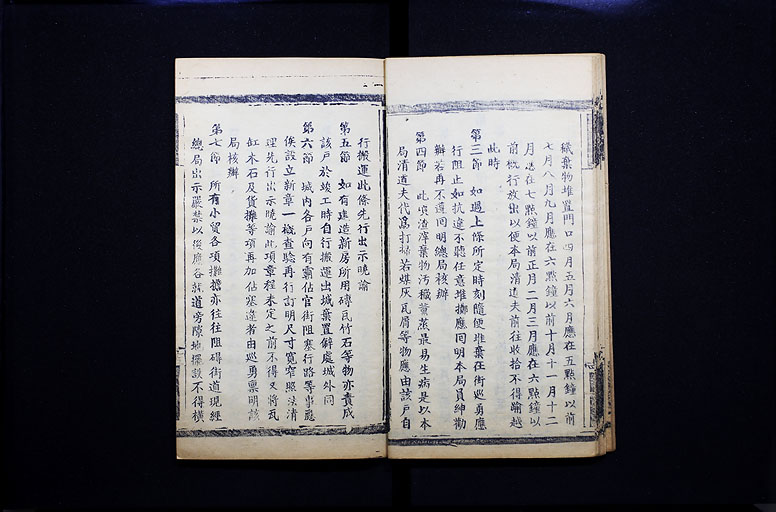 穢棄物堆置門口四月五月六月應在五點鐘以前
七月八月九月應在六點鐘以前十月十一月十二
月應在七點鐘以前正月二月三月應在六點鐘以
前概行放出以便本局清道夫前往收拾不得踰越
此時
第三節 如過上條所定時刻隨便堆棄在街巡勇應
行阻止如抗違不聽任意堆擲應回明本局員紳勸
辦若再不遵回明總局核辦
第四節 此項渣滓棄物污穢薰蒸最易生病是以本
局清道夫代為打掃若煤灰瓦屑等物應由該戶自
行搬運此條先行出示曉諭
第五節 如有建造新房所用磚瓦竹石等物亦責成
該戶於竣工時自行搬運出城棄置僻處城外同
第六節 城內各戶向有霸佔官街阻塞行路等事應
俟設立新章一概查聡再行訂明尺寸寬窄照法清
理先行出示曉諭此項章程未定之前不得又將瓦
缸木石及貨攤等項再加佔塞違者由巡勇稟明該
局核辦
第七節 所有小貿各項攤擔亦往往阻碍街道現經
總局出示嚴禁以後應各就道旁隙地擺設不得橫